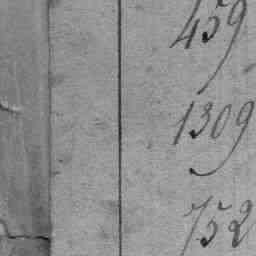 459
1309
752